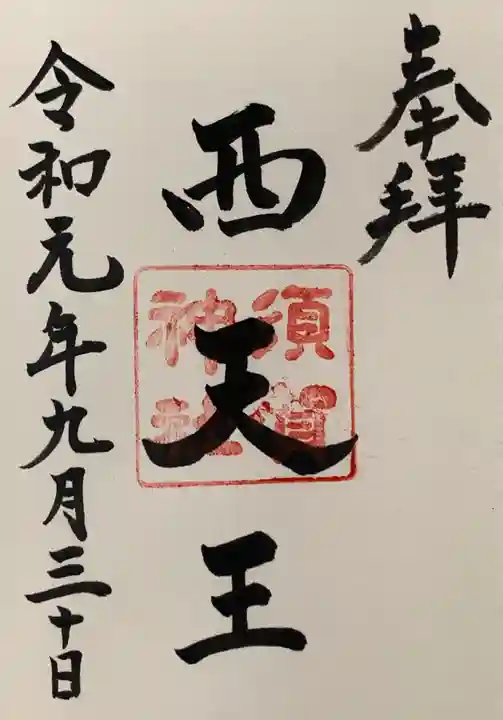 奉拝
西天王
須賀
神社
令和元年九月三十日